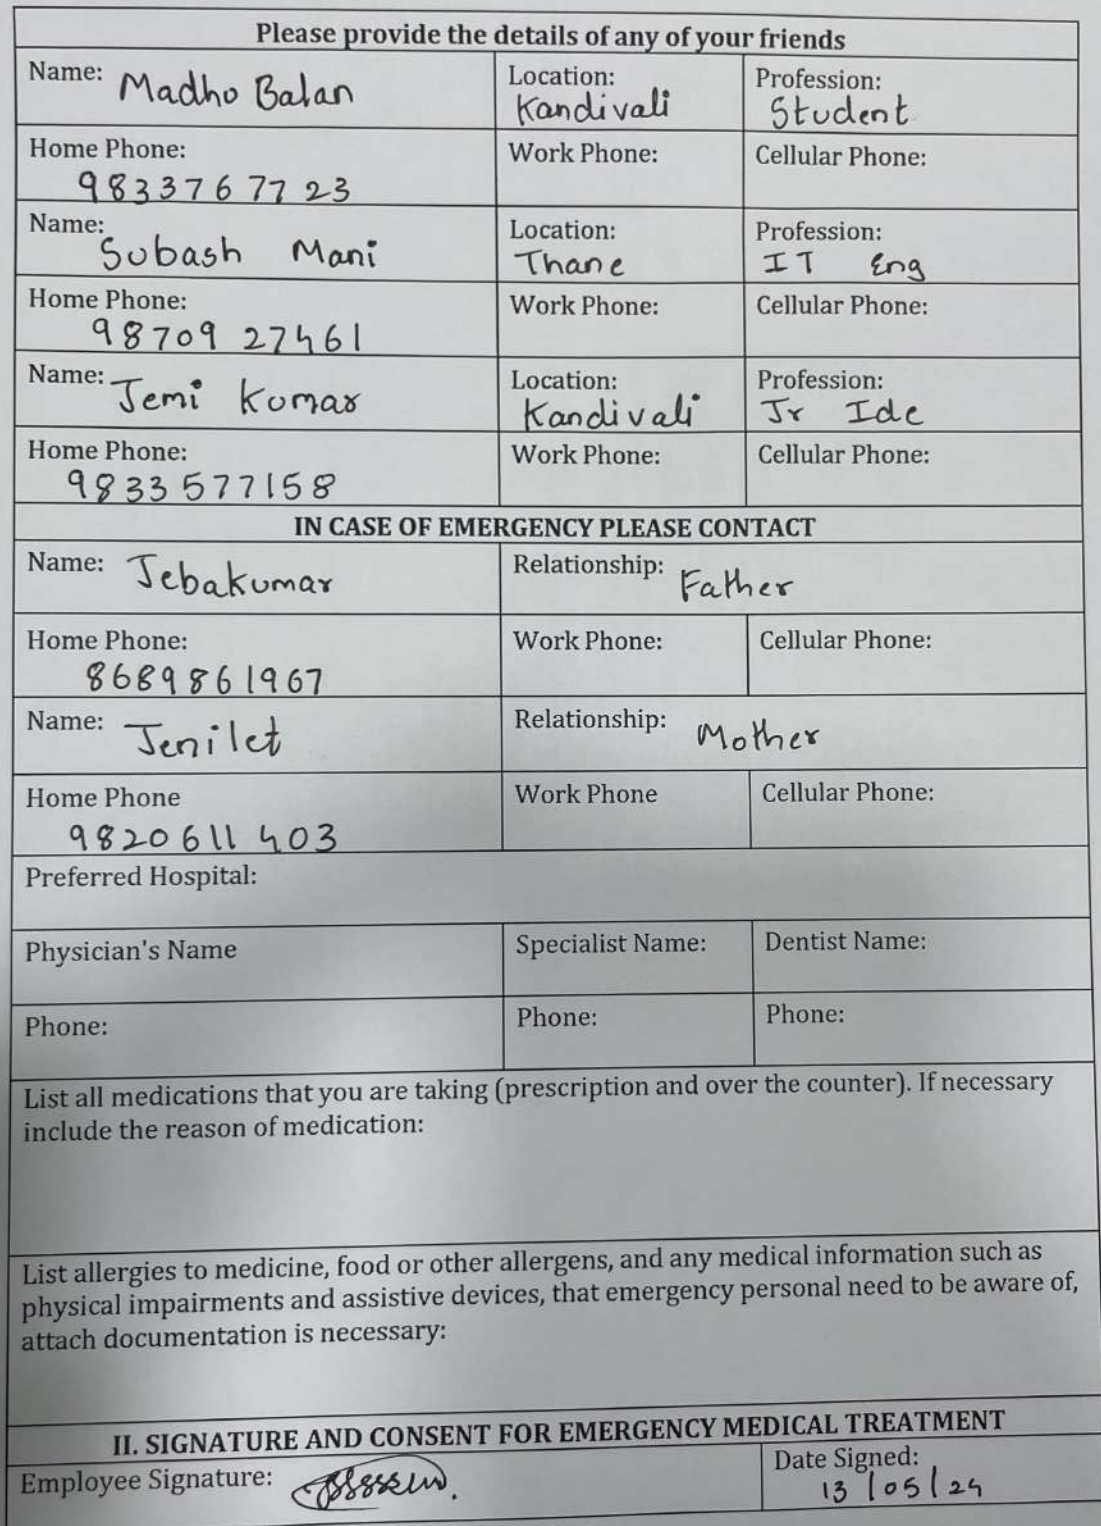 Please provide the details of any of your friends
Name: Madho Balan Location: Kandivali Profession: Student
Home Phone: 9833767723 Work Phone: Cellular Phone:
Name: Subash Mani Location: Thane Profession: IT Eng
Home Phone: 98709 27461 Work Phone: Cellular Phone:
Name: Jemi Kumar Location: Kandivali Profession: Jr Ide
Home Phone: 9833577158 Work Phone: Cellular Phone:
IN CASE OF EMERGENCY PLEASE CONTACT
Name: Jebakumar Relationship: Father
Home Phone: 8689861967 Work Phone: Cellular Phone:
Name: Jenilet Relationship: Mother
Home Phone 9820611403 Work Phone Cellular Phone:
Preferred Hospital:
Physician's Name Specialist Name: Dentist Name:
Phone: Phone: Phone:
List all medications that you are taking (prescription and over the counter). If necessary
include the reason of medication:
List allergies to medicine, food or other allergens, and any medical information such as
physical impairments and assistive devices, that emergency personal need to be aware of,
attach documentation is necessary:
II. SIGNATURE AND CONSENT FOR EMERGENCY MEDICAL TREATMENT
Employee Signature: Date Signed: 13/05/24